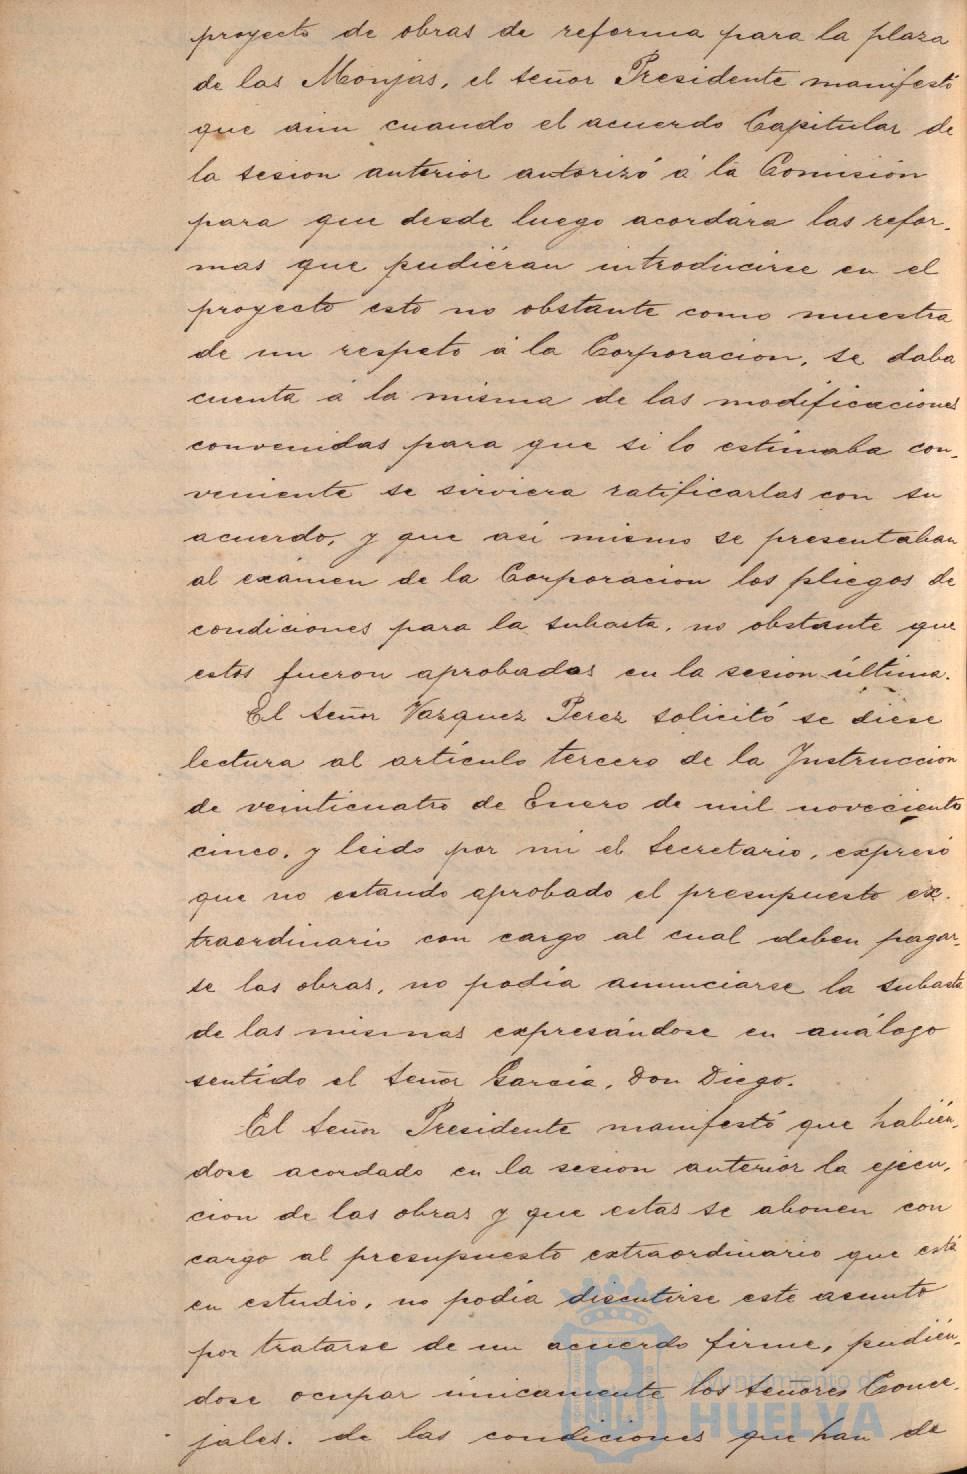 proyecto de obras de reforma para la plaza
de las Monjas, el señor Presidente manifestó
que aun cuando el acuerdo Capitular de
la sesion anterior autorizó á la Comisión
para que desde luego acordára las refor-
mas que pudiéran introducirse en el
proyecto esto no obstante como muestra
de un respeto á la Corporacion, se daba
cuenta á la misma de las modificaciones
convenidas para que si lo estimaba con-
veniente se sirviera ratificarlas con su
acuerdo, y que asi mismo se presentaban
al exámen de la Corporacion los pliegos de
condiciones para la subasta, no obstante que
estos fueron aprobadas en la sesion última.
El señor Vazquez Perez solicitó se diese
lectura al artículo tercero de la Instruccion
de veinticuatro de Enero de mil novecientos
cinco, y leido por mi el Secretario, expresó
que no estando aprobado el presupuesto ex-
traordinario con cargo al cual deben pagar-
se las obras, no podía anunciarse la subasta
de las mismas expresándose en análogo
sentido el señor García, Don Diego.
El señor Presidente manifestó que habién-
dose acordado en la sesion anterior la ejecu-
cion de las obras y que estas se abonen con
cargo al presupuesto extraordinario que está
en estudio, no podía discutirse este asunto
por tratarse de un acuerdo firme, pudién-
dose ocupar únicamente los señores Conce-
jales, de las condiciones que han de
Ayuntamiento de
HUELVA